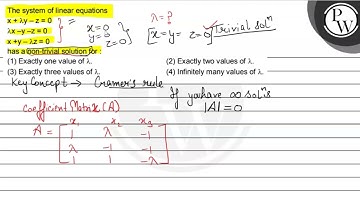 The system of linear equations
x + λy – z = 0
λx –y –z = 0
x +y – λz = 0
has a non-trivial solution for :
(1) Exactly one value of λ.
(2) Exactly two values of λ.
(3) Exactly three values of λ.
(4) Infinitely many values of λ.
λ = ?
x = 0
y = 0
z = 0
[x = y = z = 0] Trivial solⁿ
Key Concept → Cramer's rule
If you have ∞ solⁿs
|A| = 0
Coefficient Matrix (A)
x₁ x₂ x₃
A = 1 λ -1
λ -1 -1
1 1 -λ